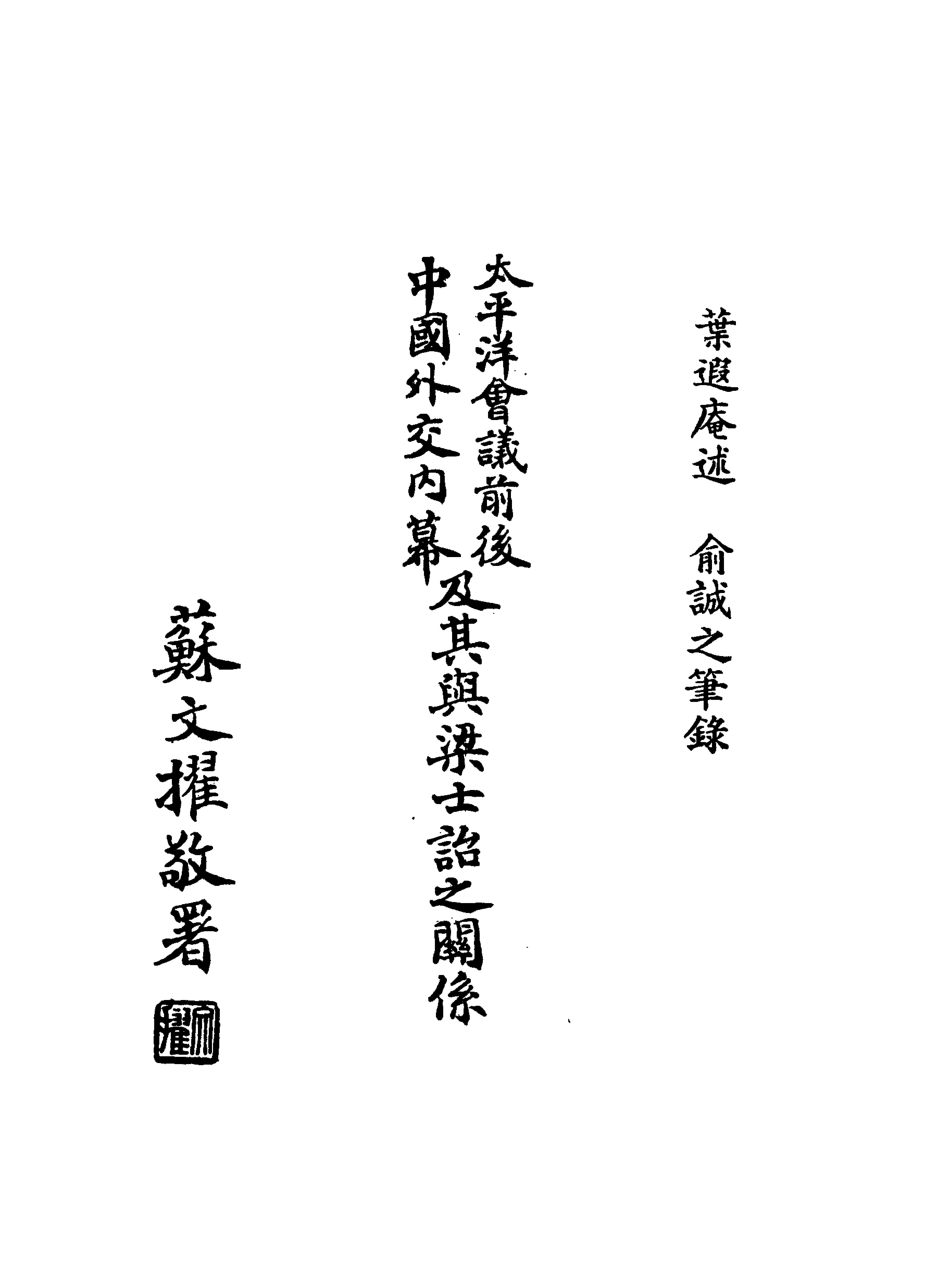 葉遐庵述　俞誠之筆錄
太平洋會議前後
中國外交內幕
及其與梁士詒之關係
蘇文擢敬署
文擢